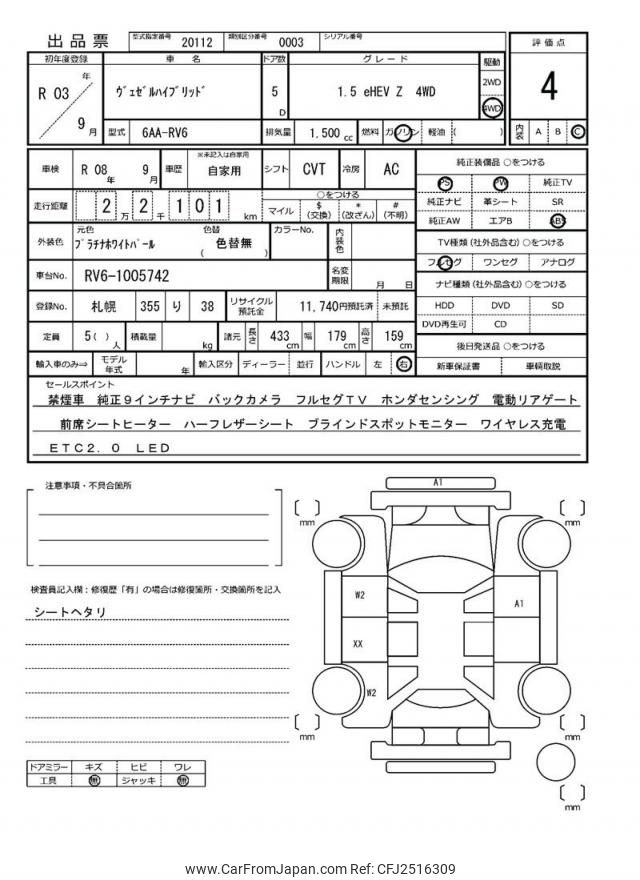 出品票 型式指定番号 20112 類別区分番号 0003 シリアル番号
評価点
初年度登録 車名 ドア数 グレード 駆動
R 03 年 9 月 ヴェゼルハイブリッド 5 D 1.5 eHEV Z 4WD 2WD 4WD
4
型式 6AA-RV6 排気量 1.500 cc 燃料 ガソリン 軽油 ( ) 内装 A B C
車検 R 08 年 9 月 車歴 ※未記入は自家用 自家用 シフト CVT 冷房 AC
純正装備品 ○をつける
PS PW 純正TV
純正ナビ 革シート SR
純正AW エアB ABS
走行距離 2 万 2 千 1 0 1 km
○をつける
マイル $ (交換) * (改ざん) # (不明)
外装色 元色 プラチナホワイトパール 色替 ( 色替無 ) カラーNo. 内装色
TV種類 (社外品含む) ○をつける
フルセグ ワンセグ アナログ
車台No. RV6-1005742 名変期限 月 日
ナビ種類 (社外品含む) ○をつける
HDD DVD SD
DVD再生可 CD
登録No. 札幌 355 り 38 リサイクル預託金 11,740円預託済 未預託
定員 5( ) 人 積載量 kg 諸元 長さ 433 cm 幅 179 cm 高さ 159 cm
後日発送品 ○をつける
新車保証書 車輌取説
輸入車のみ⇒ モデル年式 年 輸入区分 ディーラー 並行 ハンドル 左 右
セールスポイント
禁煙車 純正9インチナビ バックカメラ フルセグTV ホンダセンシング 電動リアゲート
前席シートヒーター ハーフレザーシート ブラインドスポットモニター ワイヤレス充電
ETC2.0 LED
注意事項・不具合箇所
検査員記入欄：修復歴「有」の場合は修復箇所・交換箇所を記入
シートヘタリ
A1
[ ] mm
[ ] mm
W2
A1
XX
W2
[ ] mm
[ ] mm
[ ] mm
ドアミラー キズ ヒビ ワレ
工具 無 ジャッキ 無
www.CarFromJapan.com Ref: CFJ2516309